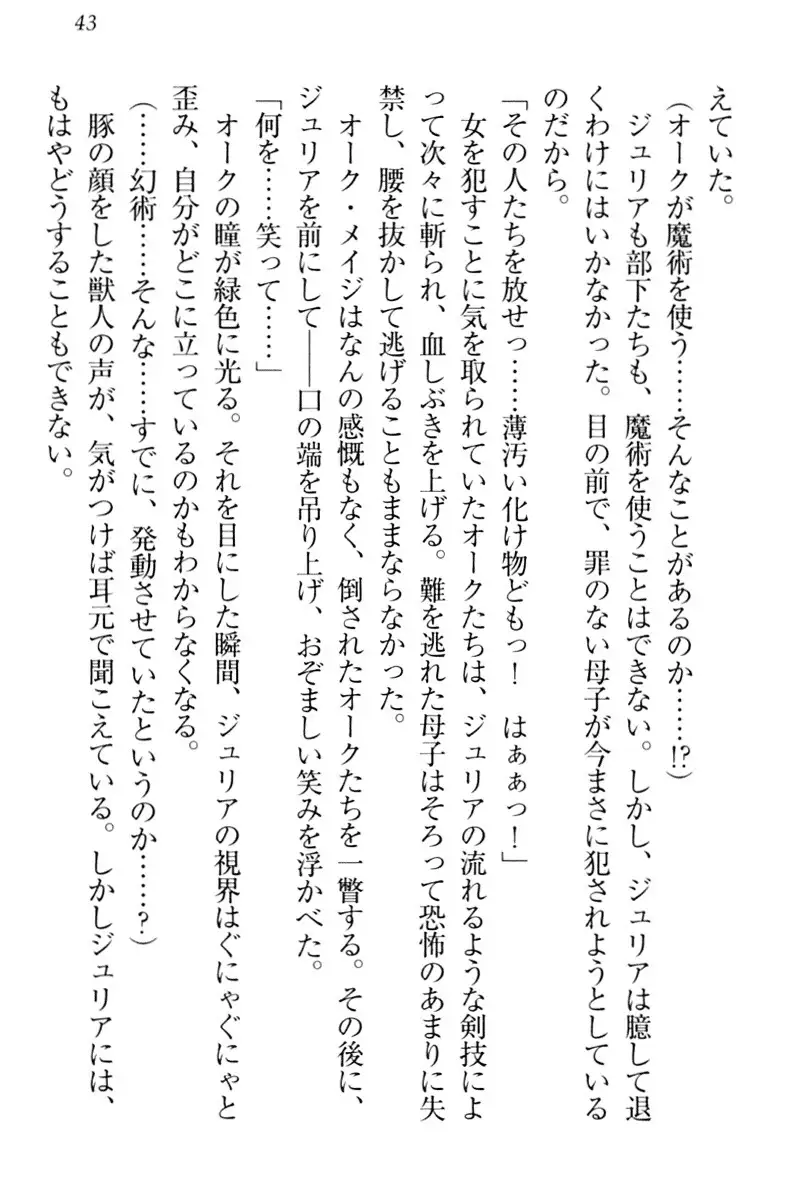 43
えていた。
(オークが魔術を使う……そんなことがあるのか……!?)
ジュリアも部下たちも、魔術を使うことはできない。しかし、ジュリアは臆して退
くわけにはいかなかった。目の前で、罪のない母子が今まさに犯されようとしている
のだから。
「その人たちを放せっ……薄汚い化け物どもっ! はぁぁっ!」
女を犯すことに気を取られていたオークたちは、ジュリアの流れるような剣技によ
って次々に斬られ、血しぶきを上げる。難を逃れた母子はそろって恐怖のあまりに失
禁し、腰を抜かして逃げることもままならなかった。
オーク・メイジはなんの感慨もなく、倒されたオークたちを一瞥する。その後に、
ジュリアを前にして――口の端を吊り上げ、おぞましい笑みを浮かべた。
「何を……笑って……」
オークの瞳が緑色に光る。それを目にした瞬間、ジュリアの視界はぐにゃぐにゃと
歪み、自分がどこに立っているのかもわからなくなる。
(……幻術……そんな……すでに、発動させていたというのか……?)
豚の顔をした獣人の声が、気がつけば耳元で聞こえている。しかしジュリアには、
もはやどうすることもできない。